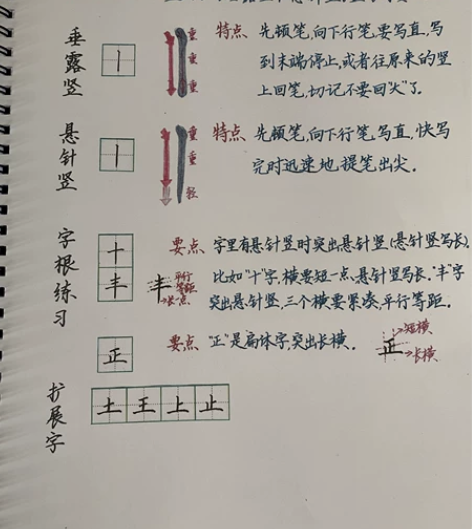 垂露竖
重
重
重
特点 先顿笔,向下行笔,要写直,写
到末端停止,或者往原来的竖
上回笔,切记不要回"大"了.
悬针竖
重
重
轻
特点 先顿笔,向下行笔,写直,快写
完时迅速地,提笔出尖.
字根练习
十
丰
丰
平行
等距
长一点
要点 字里有悬针竖时突出悬针竖(悬针竖写长).
比如"十"字,横要短一点,悬针竖写长."丰"字
突出悬针竖,三个横要紧凑,平行等距.
正
要点 "正"是扁体字,突出长横.
正
短横
长横
扩展字
土王上止